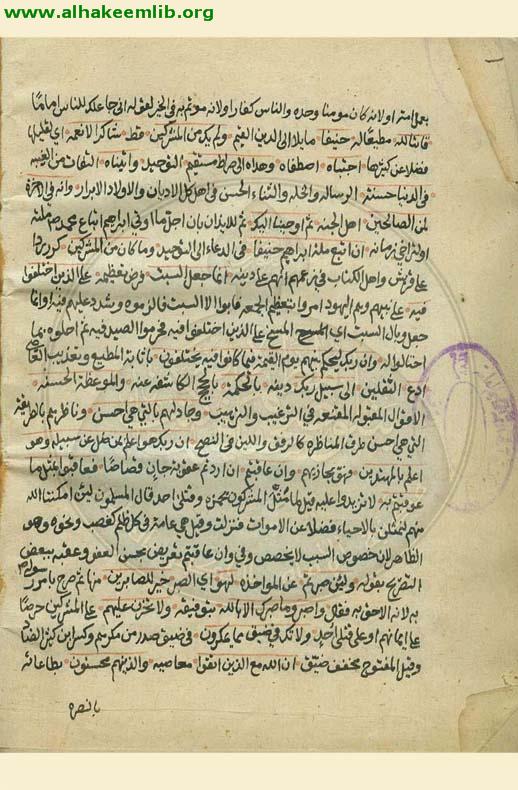 www.alhakeemlib.org
بعمل امته اولانه كان مومنا وحده والناس كفار اولانه موتم به في الخير لقوله اني جاعلك للناس اماما
قانتا لله مطيعا له حنيفا مايلا الى الدين القيم ولم يك من المشركين قط شاكرا لانعمه اي لقليلها
فضلا عن كثيرها اجتباه اصطفاه وهداه الى صراط مستقيم التوحيد واتيناه التفات من الغيبه
في الدنيا حسنة الرساله والخله والثناء الحسن في اهل كل الاديان والاولاد الابرار وانه في الاخرة
لمن الصالحين اهل الجنه ثم اوحينا اليك ثم للايذان بان اجل ما اوتي ابراهيم اتباع محمد ص ملته
او لتراخي زمانه ان اتبع ملة ابراهيم حنيفا في الدعاء الى التوحيد وما كان من المشركين كرر ردا
على قريش واهل الكتاب في زعمهم انهم على دينه انما جعل السبت فرض تعظيمه على الذين اختلفوا
فيه على نبيهم وهم اليهود امروا بتعظيم الجمعه فابوا الا السبت فالزموه وشدد عليهم فيه او انما
جعل وبال السبت اي المسخ على الذين اختلفوا فيه فحرموا الصيد فيه ثم احلوه بما
احتالوا له وان ربك ليحكم بينهم يوم القيمة فيما كانوا فيه يختلفون باثابة المطيع وتعذيب العاصي
ادع الثقلين الى سبيل ربك دينه بالحكمة بالحجج الكاشفة عنه والموعظة الحسنه
الاقوال المقبوله المقنعه في الترغيب والترهيب وجادلهم بالتي هي احسن وناظرهم بالطريقة
التي هي احسن طرق المناظره كالرفق واللين في النصح ان ربك هو اعلم بمن ضل عن سبيله وهو
اعلم بالمهتدين فهو يجازيهم وان عاقبتم ان اردتم عقوبة جان قصاصا فعاقبوا بمثل ما
عوقبتم به لا تزيدوا عليه قيل لما مثل المشركون بحمزه وقتلى احد قال المسلمون لين امكننا الله
منهم لنمثلن بالاحياء فضلا عن الاموات فنزلت وقيل هي عامة في كل ظلم كغصب ونحوه وهو
الظاهر لان خصوص السبب لا يخصص وفي وان عاقبتم تعريض بحسن العفو وعقبه ببعض
التصريح بقوله ولين صبرتم عن المواخذه لهو اي الصبر خير للصابرين منها ثم صرح بامر رسوله ص
به لانه الاحق به فقال واصبر وما صبرك الا بالله بتوفيقه ولا تحزن عليهم على المشركين حرصا
على ايمانهم او على قتلى احد ولا تك في ضيق مما يمكرون في ضيق صدر من مكرهم وكسر ابن كثير الضاد
وقيل المفتوح مخفف ضيّق ان الله مع الذين اتقوا معاصيه والذين هم محسنون بطاعاته
بالنصره